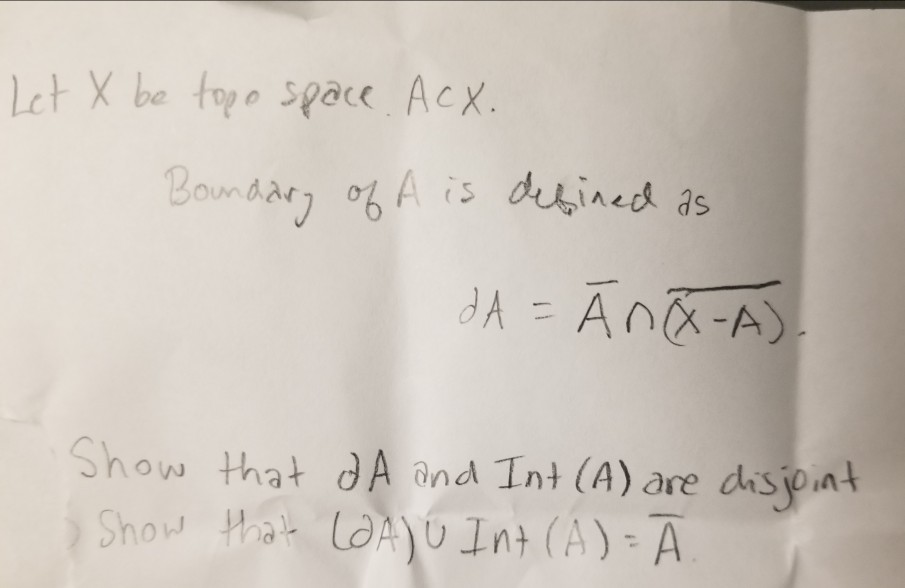 Let X be topo space. A⊂X.
Boundary of A is defined as
∂A = A̅ ∩ \overline{(X-A)}.
Show that ∂A and Int(A) are disjoint
Show that (∂A)∪Int(A) = A̅.